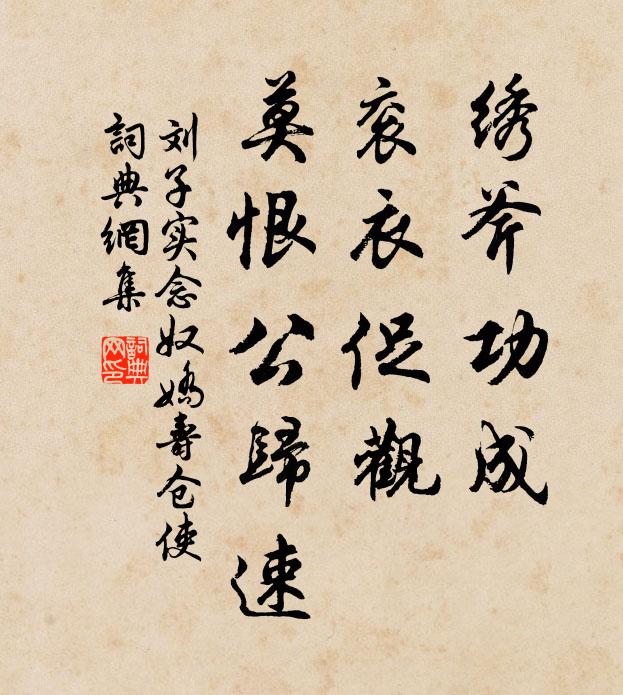 绣斧功成
衮衣促觀
莫恨公歸速
刘子实念奴娇寿仓使
詞典網集
詞典网印